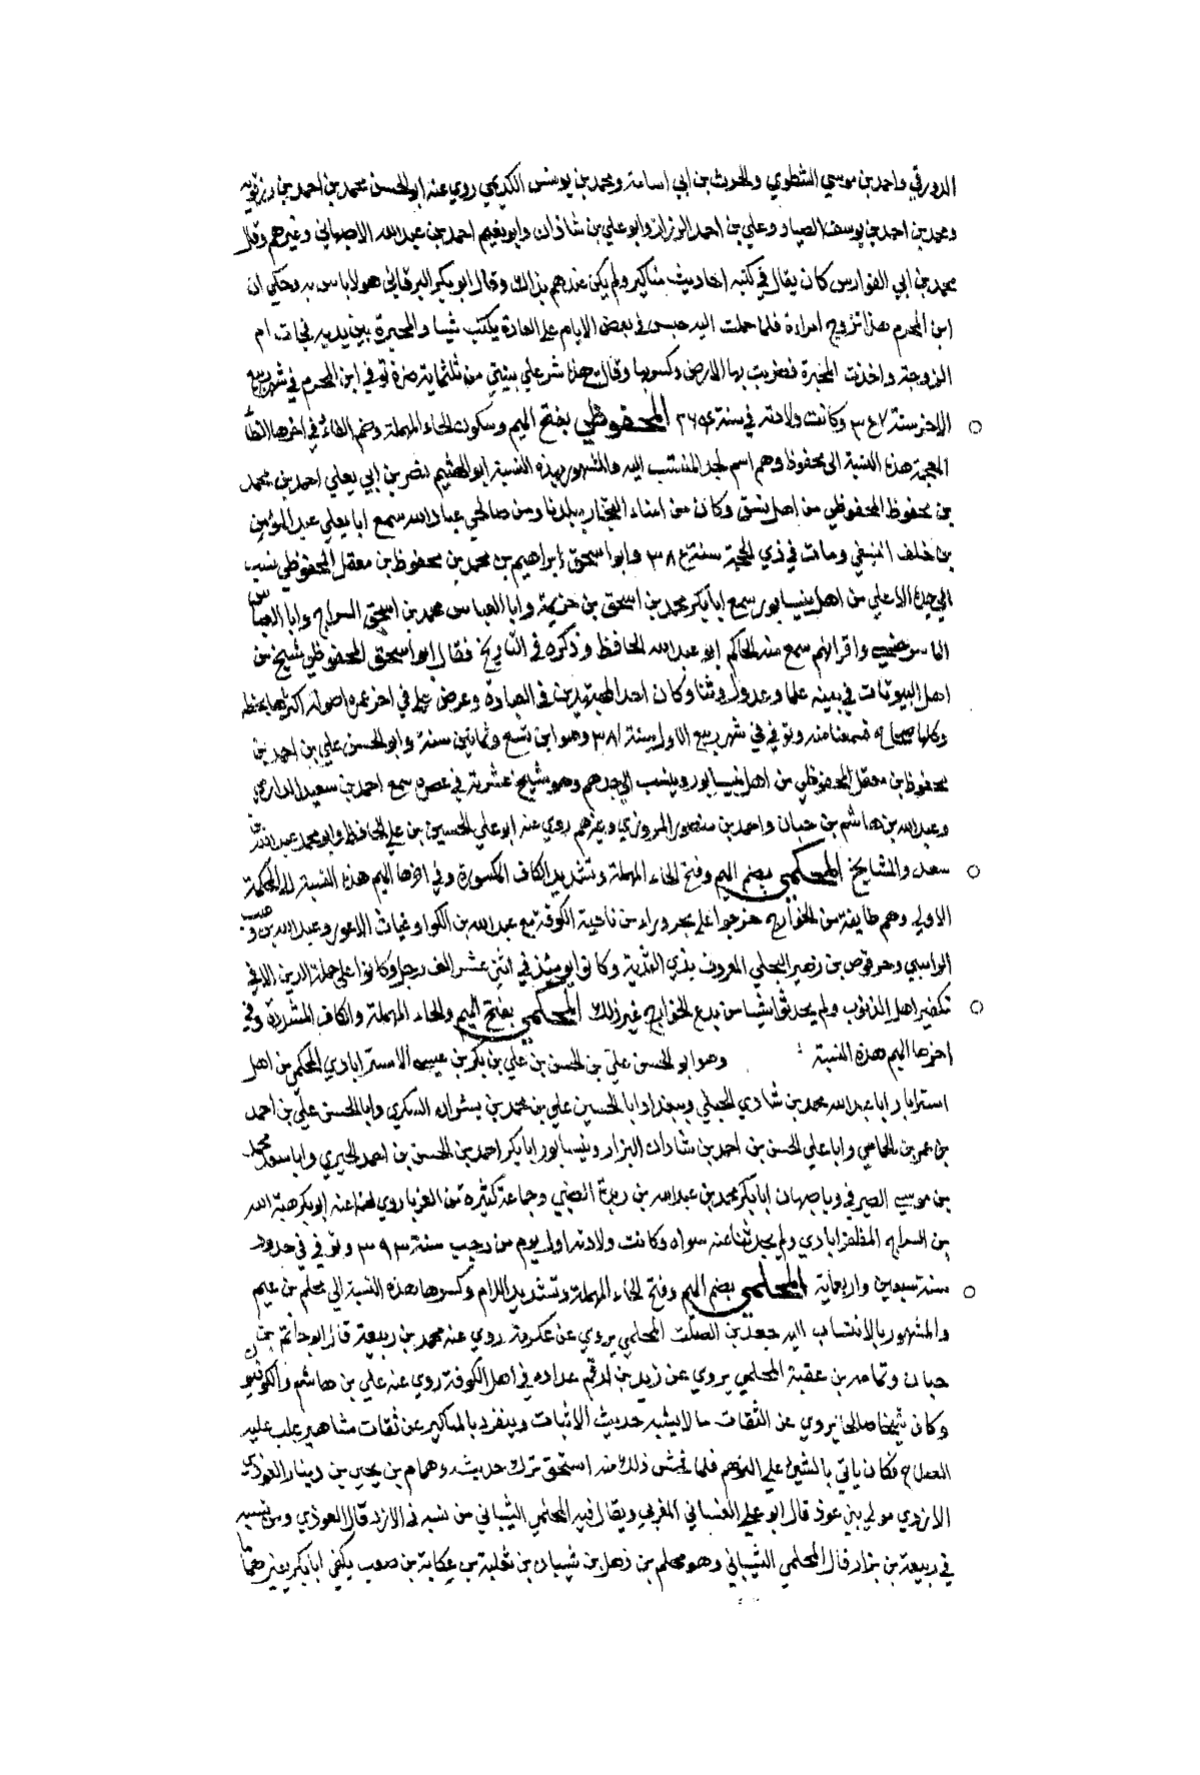 الدورقي واحمد بن موسي الشطوي والحرث بن ابي اسامة ومحمد بن يونس الكديمي روي عنه ابو الحسن محمد بن احمد بن رزقويه
ومحمد بن احمد بن يوسف الصياد وعلي بن احمد الرزاز وابو علي بن شاذان وابو نعيم احمد بن عبد الله الاصبهاني وغيرهم وقال
محمد بن ابي الفوارس كان يقال في كتبه احاديث مناكير ولم يكن عندهم بذاك وقال ابو بكر البرقاني هو لا باس به وحكي ان
ابن المحرم هذا تزوج امراة فلما حملت اليه جلس في بعض الايام علي العادة يكتب شيا والمحبرة بين يديه فجات ام
الزوجة واخذت المحبرة فضربت بها الارض وكسرتها وقالت هذا شر علي بنيتي من ثلثماية ضرة توفي ابن المحرم في شهر ربيع
الاخر سنة ٣٤٧ وكانت ولادته في سنة ٢٦٤ المحفوظي بفتح الميم وسكون الحاء المهملة وضم الفاء وفي اخرها الظا
المعجمة هذه النسبة الي محفوظ وهم اسم لجد المنتسب اليه والمشهور بهذه النسبة ابو الهثيم نصر بن ابي يعلي احمد بن محمد
بن محفوظ المحفوظي من اهل نسف وكان من امناء التجار ببلدنا ومن صالحي عباد الله سمع ابا يعلي عبد المؤمن
بن خلف النسفي ومات في ذي الحجة سنة ٣٨٤ وابو اسحق ابراهيم بن محمد بن محفوظ بن معقل المحفوظي نسب
الي جده الاعلي من اهل نيسابور سمع ابا بكر محمد بن اسحق بن خزيمة وابا العباس محمد بن اسحق السراج وابا العباس
الماسرجسي واقرانهم سمع منه الحاكم ابو عبد الله الحافظ وذكره في التاريخ فقال ابو اسحق المحفوظي شيخ من
اهل البيوتات في بيته علما وعدول وثنا وكان احد المجتهدين في العبادة وعرض علي في اخر عمره اصوله اكثرها بخطه
وكلها صحاح فسمعنا منه وتوفي في شهر ربيع الاول سنة ٣٨١ وهو ابن تسع وثمانين سنة وابو الحسن علي بن احمد بن
محفوظ بن معقل المحفوظي من اهل نيسابور وينسب الي جدهم وهو شيخ عشريته في عصره سمع احمد بن سعيد الدارمي
وعبد الله بن هاشم بن حيان واحمد بن منصور المروزي وغيرهم روي عنه ابو علي الحسين بن علي الحافظ وابو محمد عبد الله بن
سعد والمشايخ المحكمي بضم الميم وفتح الحاء المهملة وتشديد الكاف المكسورة وفي اخرها الميم هذه النسبة للمحكمة
الاولي وهم طايفة من الخوارج خرجوا علي بحروراء من ناحية الكوفة مع عبد الله بن الكوا وغياث الاعور وعبد الله بن وهب
الراسبي وحرقوص بن زهير البجلي المعروف بذي الثدية وكانوا يومئذ في اثني عشر الف رجل وكانوا علي جملة الدين الا في
تكفير اهل الذنوب ولم يحدثوا شيا من بدع الخوارج غير ذلك المحكمي بفتح الميم والحاء المهملة والكاف المشددة وفي
اخرها الميم هذه النسبة وهو ابو الحسن علي بن الحسن بن علي بن بكر بن عيسي الاستراباذي المحكمي من اهل
استراباد ابا عبد الله محمد بن شادي الجبلي وببغداد ابا الحسين علي بن محمد بن بشران السكري وابا الحسن علي بن احمد
بن عمر بن الحمامي وابا علي الحسن بن احمد بن شادان البزاز وبنيسابور ابا بكر احمد بن الحسن بن احمد الحيري وابا سعد محمد
بن موسي الصيرفي وباصبهان ابا بكر محمد بن عبد الله بن ريذة الضبي وجماعة كثيرة من الغربا روي لنا عنه ابو بكر هبة الله
بن السراج المظفرابادي ولم يحدثنا عنه سواه وكانت ولادته اول يوم من رجب سنة ٣٩٣ وتوفي في حدود
سنة سبعين واربعماية المحلمي بضم الميم وفتح الحاء المهملة وتشديد اللام وكسرها هذه النسبة الي محلم من تميم
والمشهور بالانتساب اليه جعد بن الصلت المحلمي يروي عن عكرمة روي عنه محمد بن ربيعة قال ابو حاتم بن
حبان وتمامه بن عقبة المحلمي يروي عن زيد بن ارقم عداده في اهل الكوفة روي عنه علي بن هاشم والكوفيون
وكان شيخا صالحا يروي عن الثقات ما لا يشبه حديث الاثبات وينفرد بالمناكير عن ثقات مشاهير غلب عليه
الصلاح فكان ياتي بالشيئ علي التوهم فلما فحش ذلك منه استحق ترك حديثه وهمام بن يحيي بن دينار العوذي
الازدي مولي بني عوذ قال ابو علي الغساني المغربي ويقال فيه المحلمي الشيباني من نسبه في الازد قال العوذي ومن نسبه
في ربيعة بن نزار قال المحلمي الشيباني وهو محلم بن ذهل بن شيبان بن ثعلبة بن عكابة بن صعب يكني ابا بكر يعني هماما